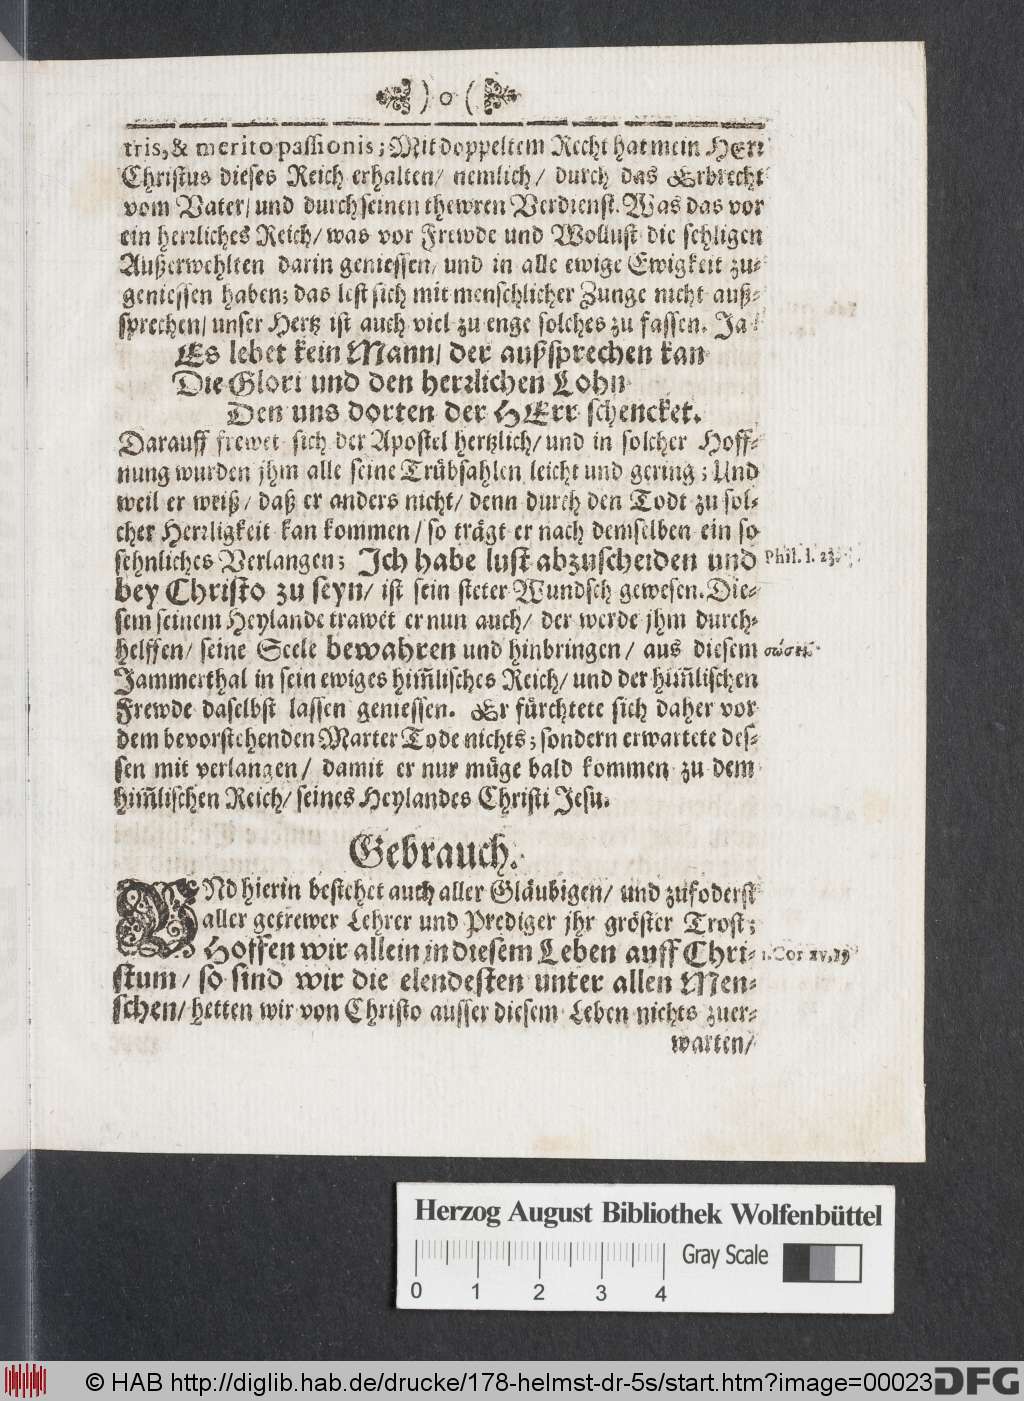 ) o (
tris, & merito passionis; Mit doppeltem Recht hat mein HErr
Christus dieses Reich erhalten/ nemlich/ durch das Erbrecht
vom Vater/ und durch seinen thewren Verdienst. Was das vor
ein herrliches Reich/ was vor Frewde und Wollust die sehligen
Außerwehlten darin geniessen/ und in alle ewige Ewigkeit zu-
geniessen haben; das lest sich mit menschlicher Zunge nicht auß-
sprechen/ unser Hertz ist auch viel zu enge solches zu fassen. Ja
Es lebet kein Mann/ der außsprechen kan
Die Glori und den herrlichen Lohn
Den uns dorten der HErr schencket.
Darauff frewet sich der Apostel hertzlich/ und in solcher Hoff-
nung wurden jhm alle seine Trübsahlen leicht und gering; Und
weil er weiß/ daß er anders nicht/ denn durch den Todt zu sol-
cher Herrligkeit kan kommen/ so trägt er nach demselben ein so
sehnliches Verlangen; Ich habe lust abzuscheiden und
Phil. 1. 23.
bey Christo zu seyn/ ist sein steter Wundsch gewesen. Die-
sem seinem Heylande trawet er nun auch/ der werde jhm durch-
helffen/ seine Seele bewahren und hinbringen/ aus diesem
σώσει
Jammerthal in sein ewiges him̃lisches Reich/ und der him̃lischen
Frewde daselbst lassen geniessen. Er fürchtete sich daher vor
dem bevorstehenden Marter Tode nichts; sondern erwartete des-
sen mit verlangen/ damit er nur müge bald kommen zu dem
him̃lischen Reich/ seines Heylandes Christi Jesu.
Gebrauch.
VNd hierin bestehet auch aller Gläubigen/ und zufoderst
aller getrewer Lehrer und Prediger jhr gröster Trost;
Hoffen wir allein in diesem Leben auff Chri-
1. Cor XV. 19
stum/ so sind wir die elendesten unter allen Men-
schen/ hetten wir von Christo ausser diesem Leben nichts zuer-
warten/
Herzog August Bibliothek Wolfenbüttel
Gray Scale
0 1 2 3 4
© HAB http://diglib.hab.de/drucke/178-helmst-dr-5s/start.htm?image=00023
DFG